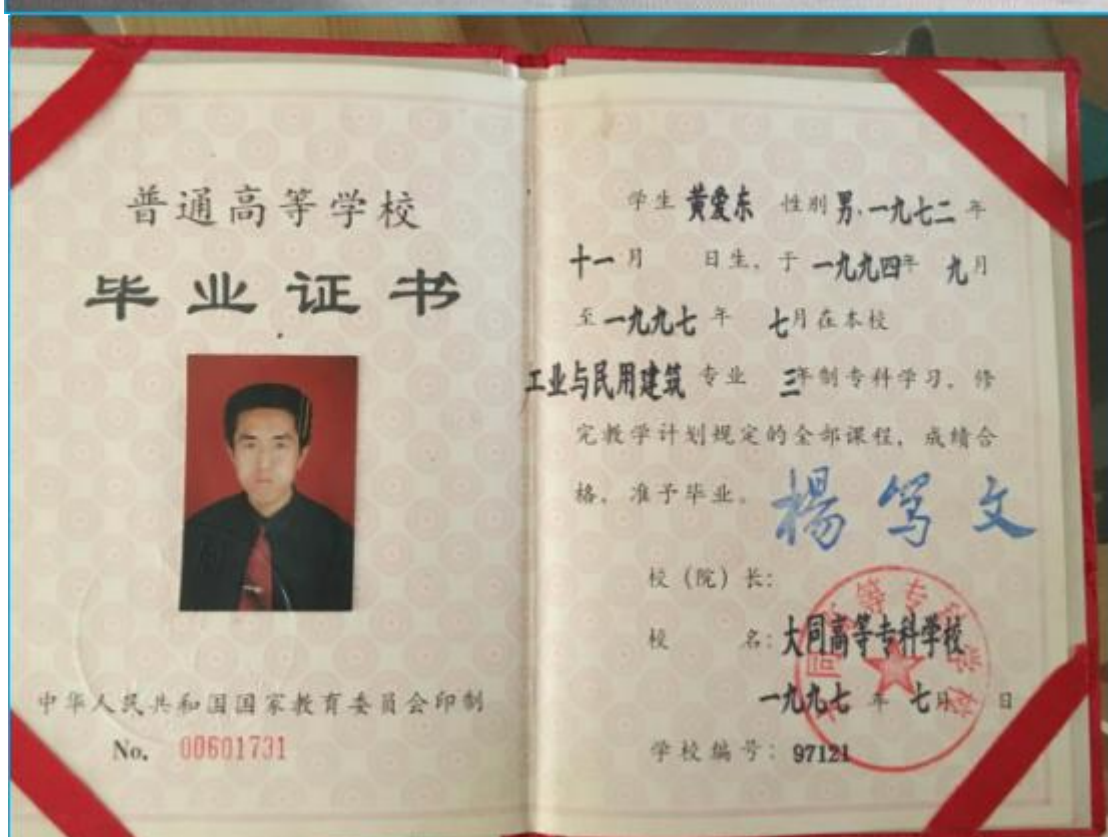 普通高等学校
毕业证书
中华人民共和国国家教育委员会印制
No. 00601731
学生 黄爱东 性别 男, 一九七二 年
十一 月 日生, 于 一九九四 年 九 月
至 一九九七 年 七 月在本校
工业与民用建筑 专业 三 年制专科学习, 修
完教学计划规定的全部课程, 成绩合
格, 准予毕业。
楊笃文
校(院)长:
校 名: 大同高等专科学校
一九九七 年 七 月 日
学校编号: 97121